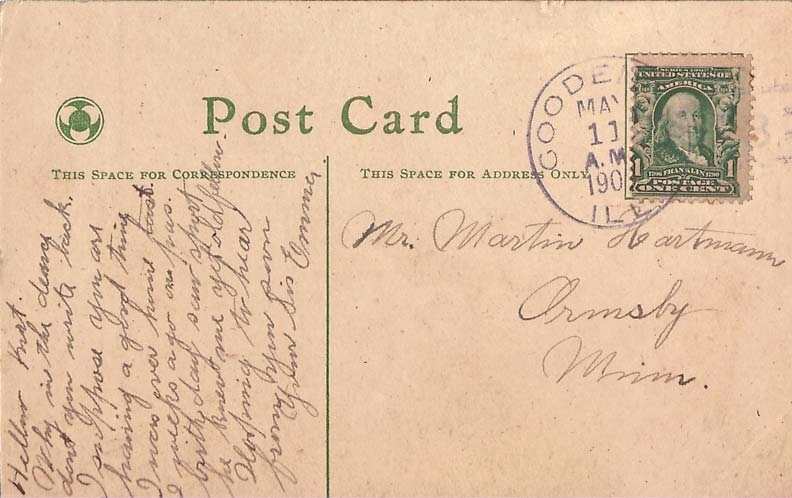 Post Card
THIS SPACE FOR CORRESPONDENCE
THIS SPACE FOR ADDRESS ONLY
GOODE
MAY
11
A.M
190
ILL
SERIES 1902
UNITED STATES OF
AMERICA
1706 FRANKLIN 1790
1 POSTAGE 1
ONE CENT
Mr. Martin Hartmann
Ormsby
Minn.
Hellow
Why in the
dont you write back.
I suppose you are
having a good time
I was over home last
2 weeks ago on pas.
birth day
he knew me yet old fellow.
Hoping to hear
from you soon
your Sis Emma